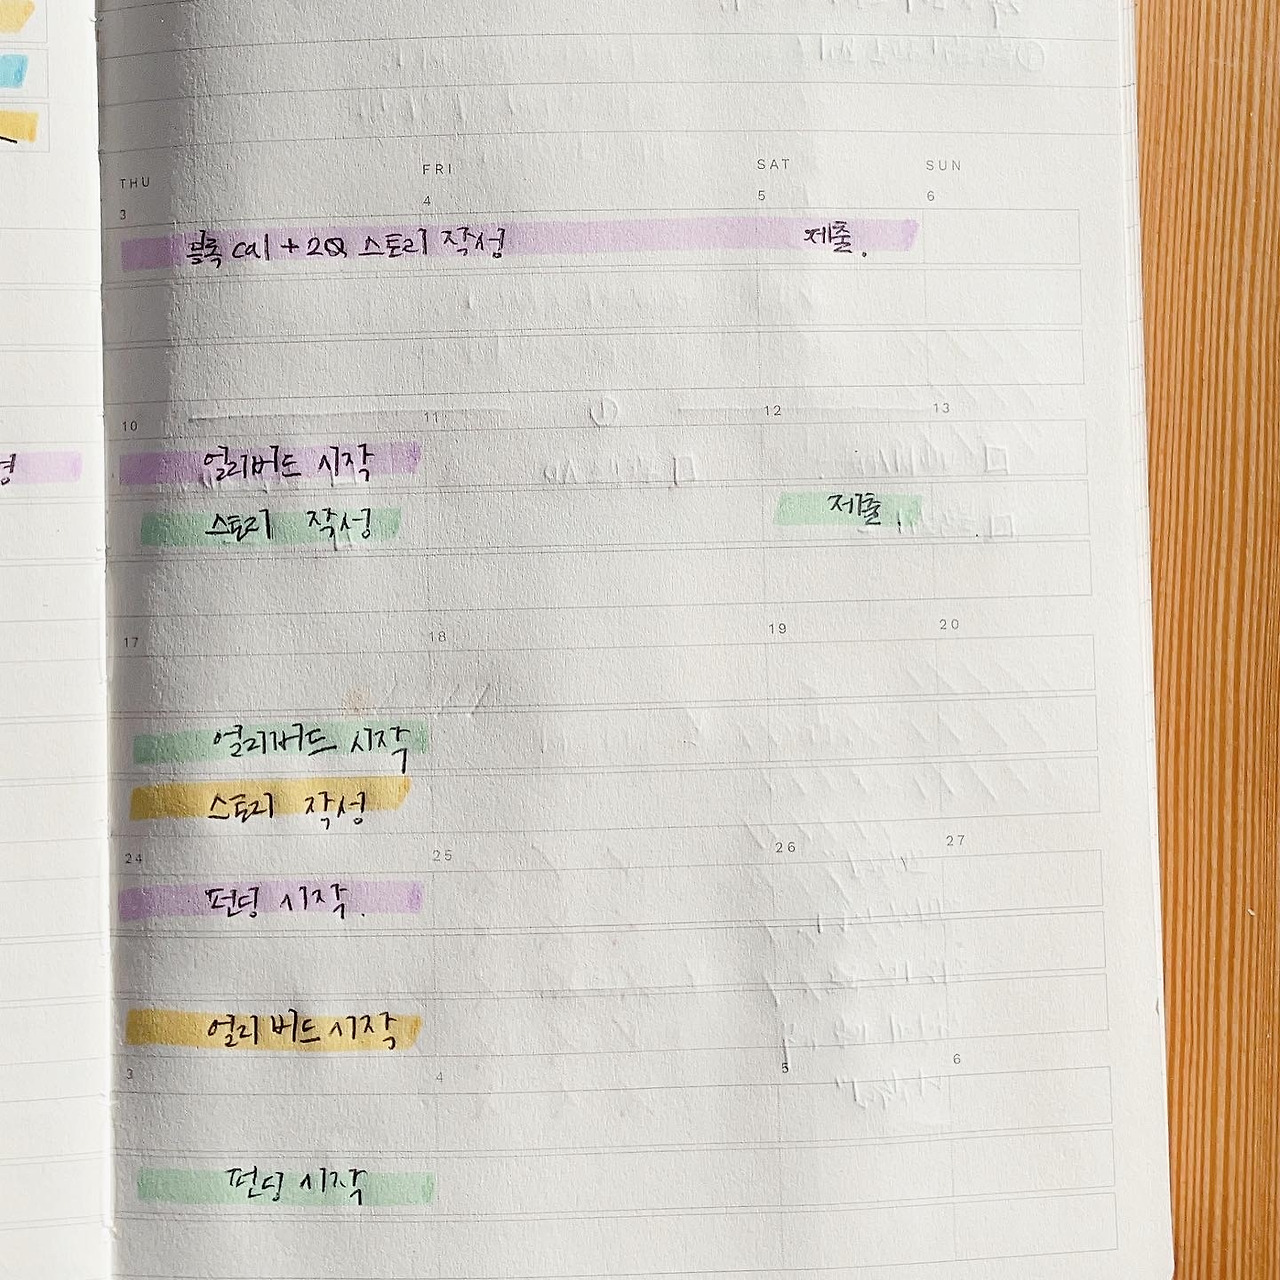 THU FRI SAT SUN
3 4 5 6
블록 cal + 2Q 스토리 작성 제출.
10 11 12 13
얼리버드 시작
스토리 작성 제출.
17 18 19 20
얼리버드 시작
스토리 작성
24 25 26 27
펀딩 시작.
얼리버드 시작
3 4 5 6
펀딩 시작